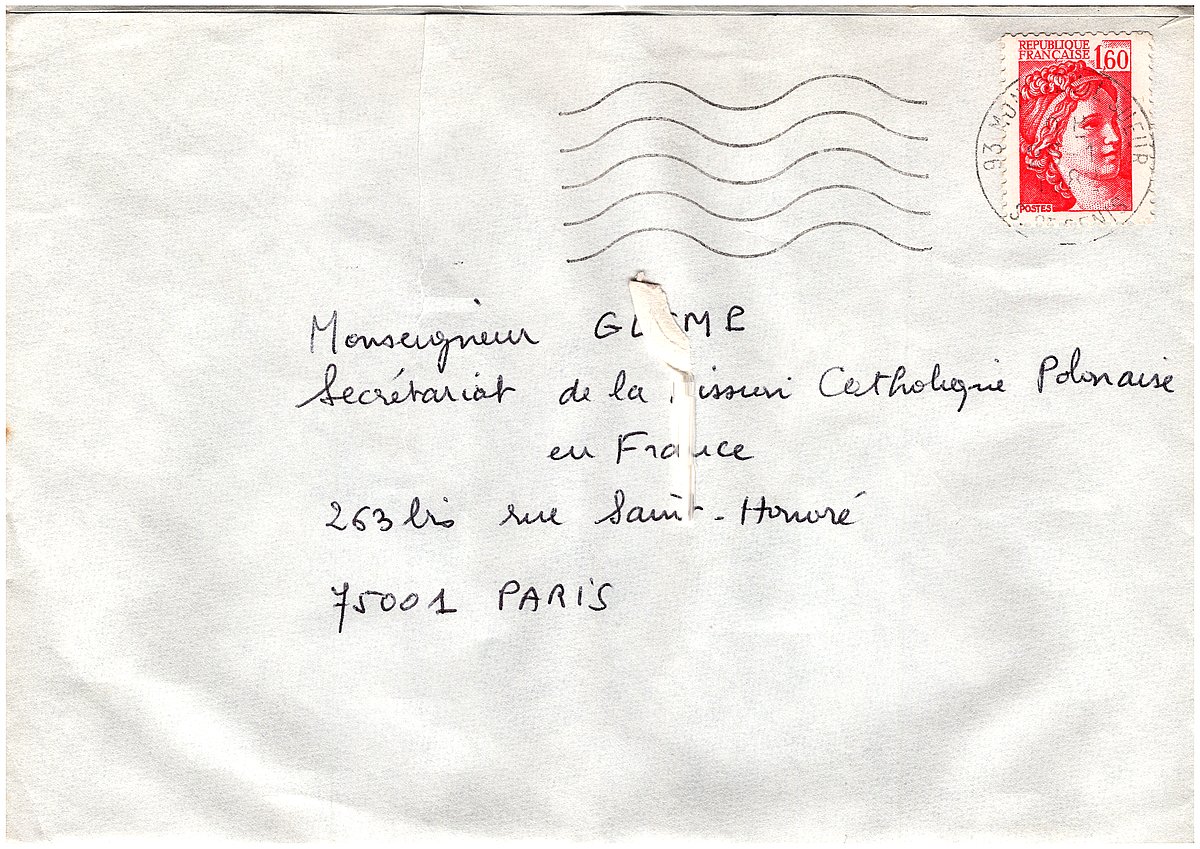 REPUBLIQUE
FRANÇAISE 1,60
POSTES
93
Monseigneur
Secrétariat de la Mission Catholique Polonaise
en France
263 bis rue Saint-Honoré
75001 PARIS